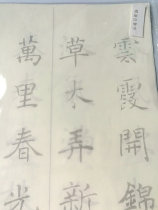 雲霞開錦
草木弄新
萬里春光